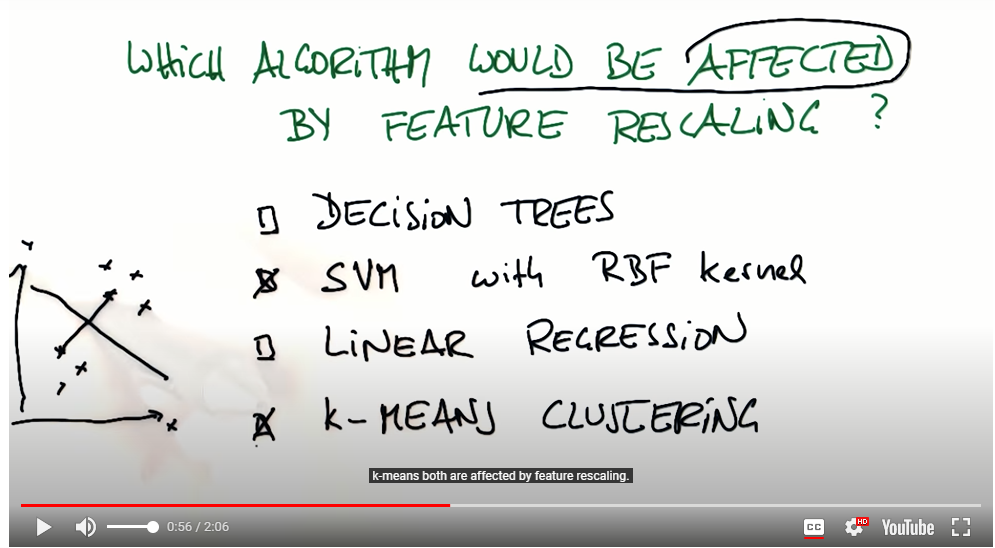 WHICH ALGORITHM WOULD BE AFFECTED
BY FEATURE RESCALING ?
DECISION TREES
SVM with RBF kernel
LINEAR REGRESSION
K-MEANS CLUSTERING
k-means both are affected by feature rescaling.
0:56 / 2:06
CC
HD
YouTube